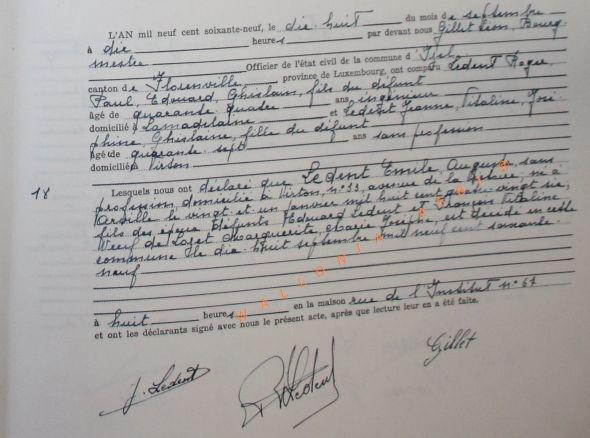 L'AN mil neuf cent soixante-neuf, le dix-huit du mois de septembre
à dix heures par devant nous Gillet Léon, Bourg-
mestre Officier de l'état civil de la commune d'Izel,
canton de Florenville province de Luxembourg, ont comparu Ledent Roger,
Paul, Edouard, Ghislain, fils du défunt
âgé de quarante-quatre ans, ingénieur
domicilié à Lamadelaine et Ledent Jeanne, Vitaline, José-
phine, Ghislaine, fille du défunt
âgé de quarante-sept ans sans profession
domicilié à Virton
18
Lesquels nous ont déclaré que Ledent Emile, Auguste, sans
profession, domicilié à Virton, n° 33, avenue de la, né à
le vingt et un janvier mil huit cent quatre-vingt six,
fils des époux défunts Edouard Ledent et François Vitaline
Veuf de Marguerite, Marie Josèphe, est décédé en cette
commune le dix-huit septembre mil neuf cent soixante-
neuf
à huit heures en la maison rue de l'Institut n° 67
et ont les déclarants signé avec nous le présent acte, après que lecture leur en a été faite.
WALLONIA
J. Ledent
Gillet